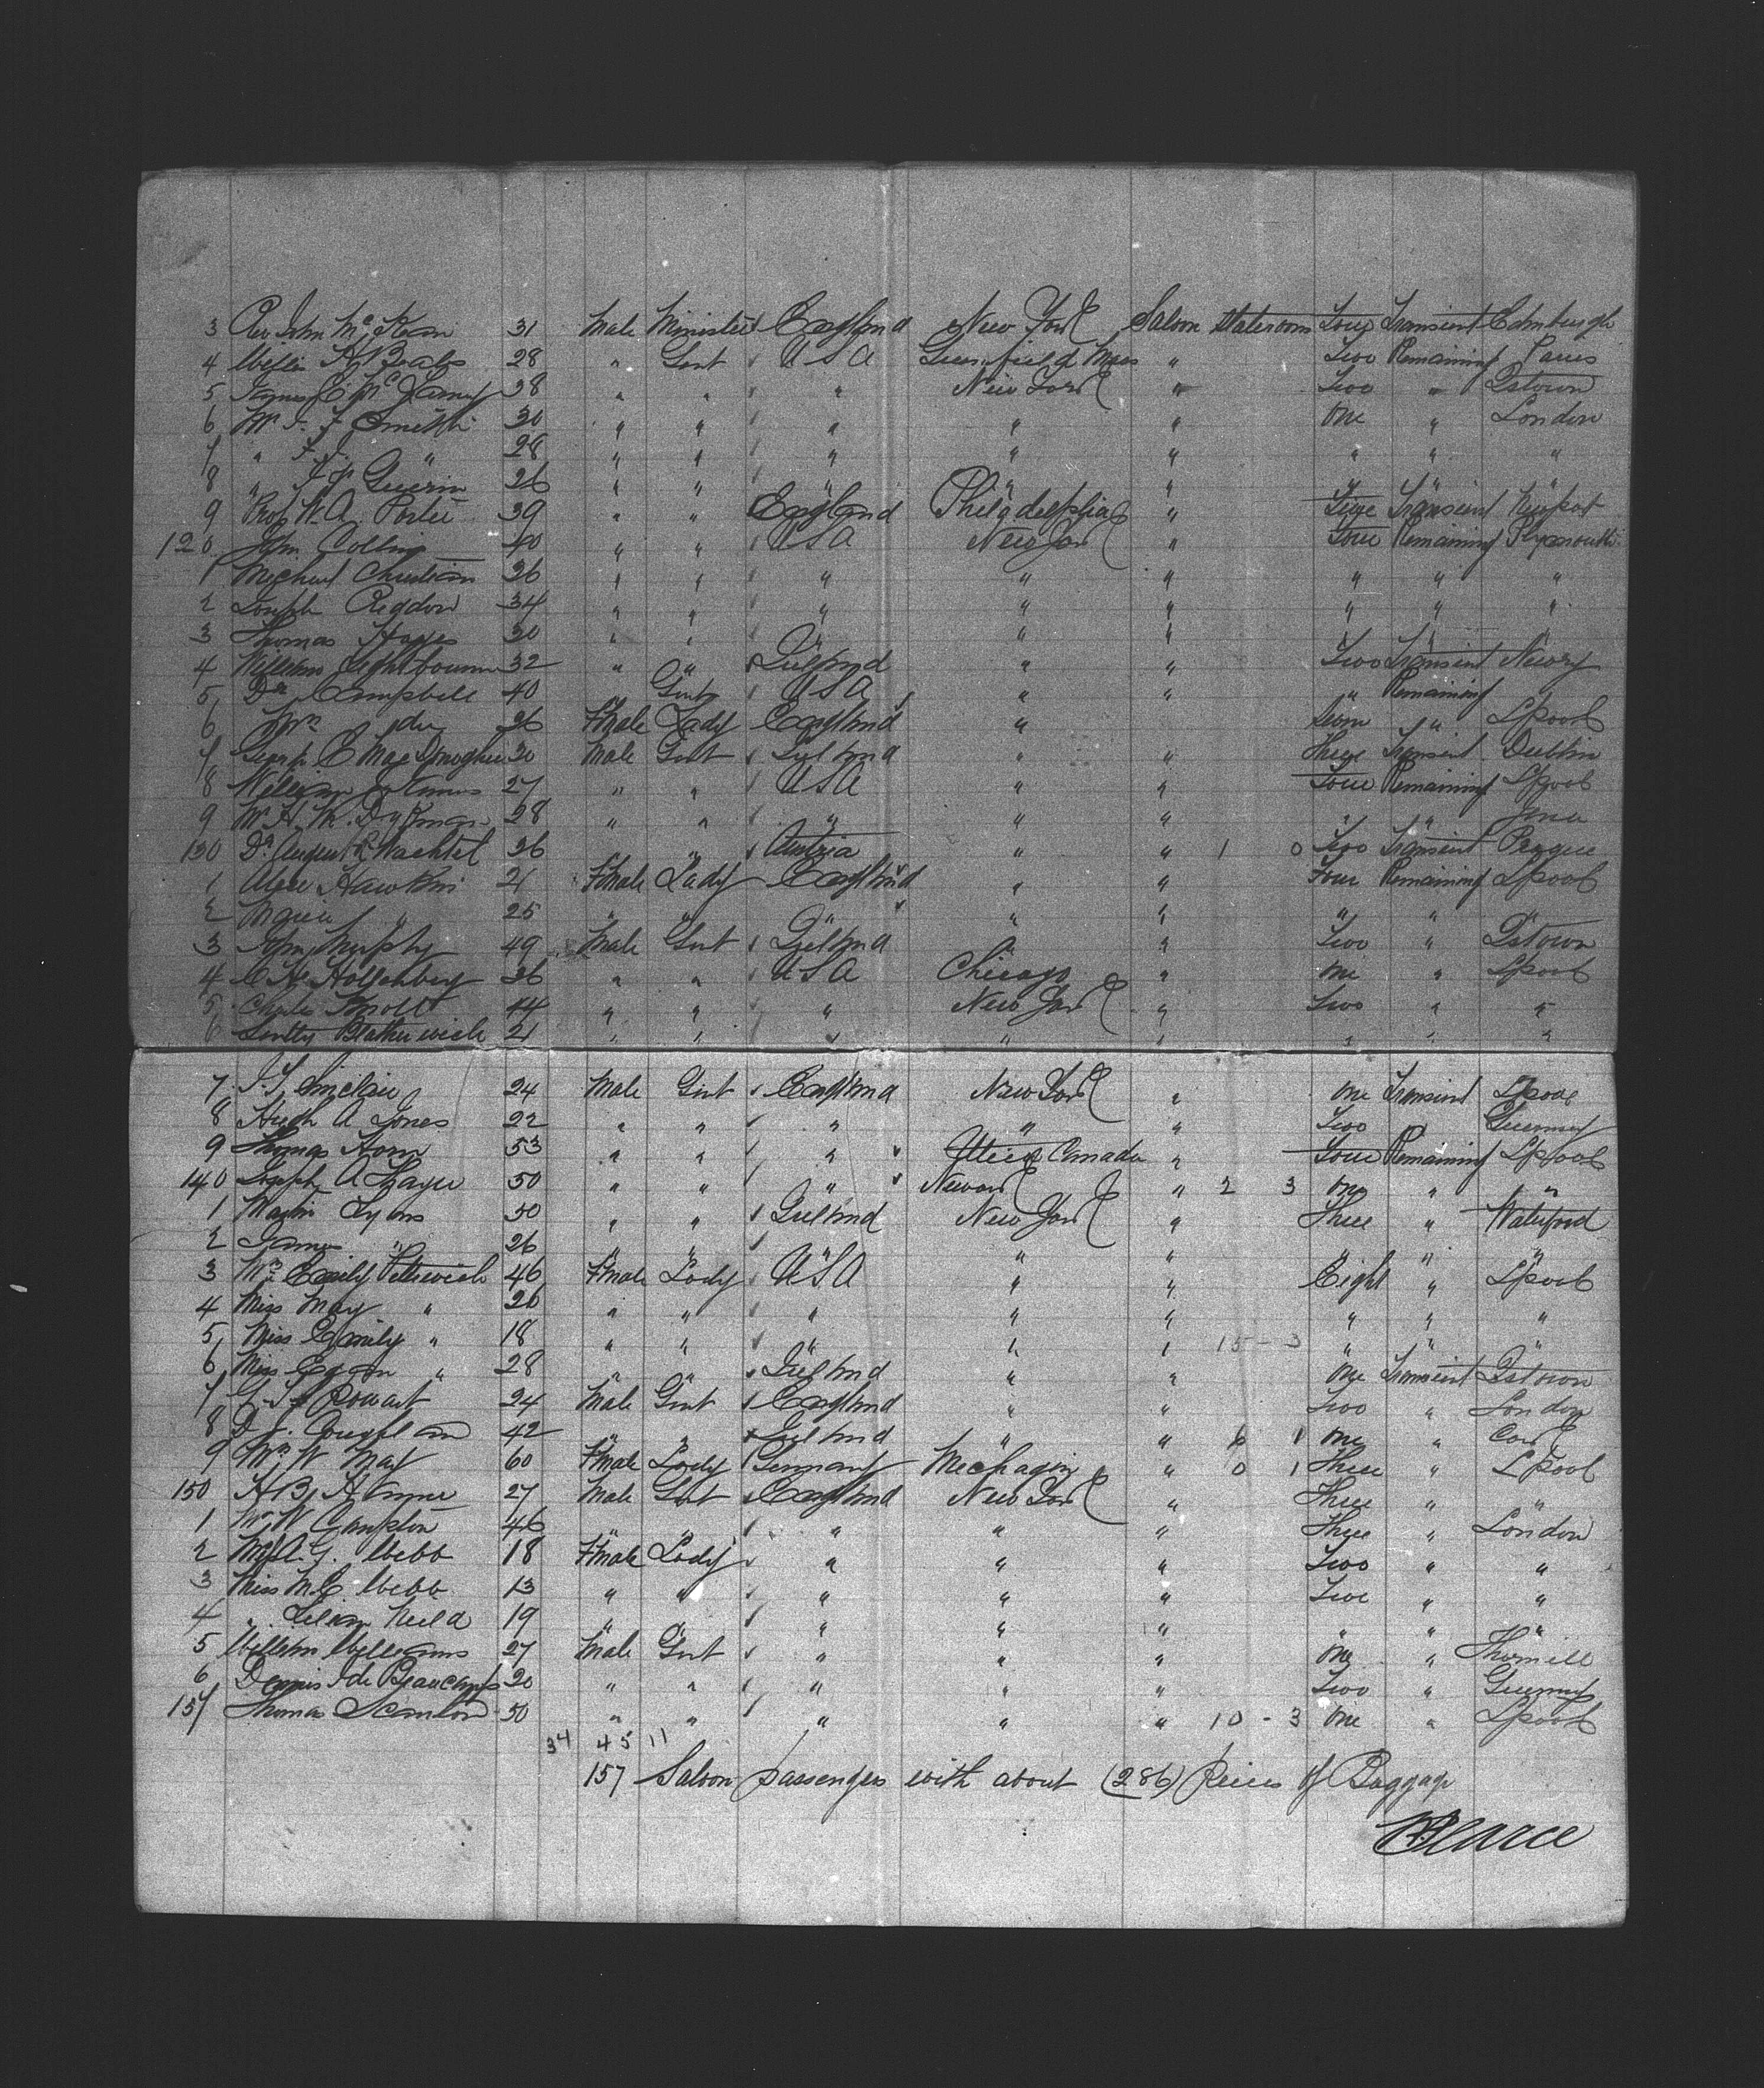 3 Rev John McKean 31 Male Minister England New York Saloon Stateroom Four Transient Edinburgh
4 28 " Gent U S A Greenfield Mass " Two Remaining Paris
5 James 38 " " " New York " Two " Qstown
6 Mr Smith 30 " " " " " One " London
7 " " 28 " " " " " " " "
8 " Guerin 26 " " " " " " " "
9 Prof W. A. Porter 39 " " England Philadelphia " Transient Newport
120 John Collins 40 " " U S A New York " Four Remaining Plymouth
1 Michael Christian 26 " " " " " " " "
2 Joseph Reddon 34 " " " " " " " "
3 Thomas Hayes 30 " " " " " " " "
4 William Lightbourne 32 " " Ireland " " Two Transient Newry
5 Dr Campbell 40 Gent U S A " " " Remaining
6 Mrs do 36 Fmale Lady England " " Lpool
7 George E MacDonoghue 30 Male Gent Ireland " " Three Transient Dublin
8 William 27 " " U S A " " Four Remaining Lpool
9 Mr H. W. Dykman 28 " " " " " " "
130 Dr August R Wachtel 36 " " Austria " " 1 0 Two Transient Prague
1 Alice Hawkins 21 Fmale Lady England " " Four Remaining Lpool
2 Maria " 25 " " " " " " " "
3 John Murphy 49 Male Gent Ireland " " Two " Qstown
4 C H Hollenberg 36 " " U S A Chicago " One " Lpool
5 Charles Knoll 44 " " " New York " Two " "
6 21 " " " " " " " "
7 Sinclair 24 Male Gent England New York " One Transient Lpool
8 Hugh A Jones 22 " " " " " Two " Guernsey
9 Thomas Horn 53 " " " Utica Canada " Four Remaining Lpool
140 Joseph A Thayer 50 " " " Newark " 2 3 One " "
1 Martin Lyons 50 " " Ireland New York " Three " Waterford
2 James " 26 " " " " " " " "
3 Mrs Emily 46 Fmale Lady U S A " " Eight " Lpool
4 Miss May " 20 " " " " " " " "
5 Miss Emily " 18 " " " " " 15 - 3 " " "
6 Miss Egan " 28 " " Ireland " " One Transient Qstown
7 Rowart 24 Male Gent England " " Two " London
8 D. J. Coughlan 42 " " Ireland " " 6 1 One " Cork
9 Mrs W May 60 Fmale Lady Germany Michagin " 0 1 Three " Lpool
150 H B 27 Male Gent England New York " Three " "
1 Mr W Campton 46 " " " " " Three " London
2 Mrs A. G. Webb 18 Fmale Lady " " " Two " "
3 Miss M. E Webb 13 " " " " " Two " "
4 " Lilian Neild 19 " " " " " " " "
5 William Williams 27 Male Gent " " " One " Thornill
6 Dennis de Beauchamps 20 " " " " " Two " Guernsey
157 Thomas Scanlon 50 " " " " " 10 - 3 One " Lpool
34 45 11
157 Saloon passengers with about (286) Peices of Baggage